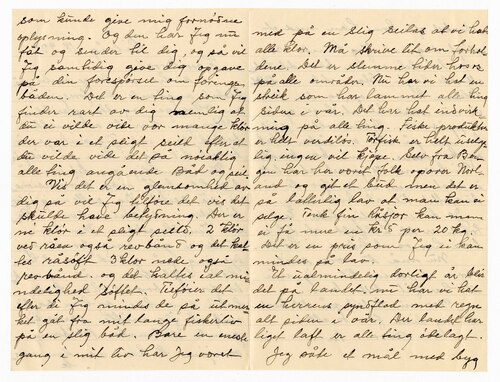 som kunde give mig fornødne
oplysning. Og den har Jeg nu
fåt og sender hit dig, og på vil
Jeg samtidig give dig opgave
på din forespørsel om förenger
båden. Det er en ting som Jeg
finder rart av dig nemlig at
du ei vilde vide vor mange klør
der var i et sligt seil efter at
du vilde vide det på nøiaktig
alle ting angående Båd og seil.
Vis det er en glemsomhed av
dig på vil Jeg tilføre det vis det
skulde have betydning. Der er
ni klör i et sligt seil. 2 klör
ved råen også revbånd og det kal
les råsöft 3 klör nede også
revbånd. og det kalles al min
delighed Söftet. Tiföier det
efter di Jeg mindes de så utmer
ket gåt fra mit lange fiskerliv
på en slig båd. Bare en eneste
gang i mit liv har Jeg været
med på en slig seilas at vi hat
alle klör. Må skrive lit om forhol
dene. Det er slemme tider hos os
på alle områder. Nu har vi hat en
streik som har lammet alle ting
siden i vår. Det har hat indvirk
ning på alle ting. Fiske produkter
er helt verdilös. Törfisk er helt uselge
lig, ingen vil kjöpe. Selv fra Ber
gen har her været folk og over Nord
land og git et bud men det er
på latterlig lav at man kan ei
selge. Tenk fin Råskjær kan man
ei få mere en kr 5 per 20 kg.
det er en pris som Jeg ei kan
mindes på lav.
Et ualmindelig dårligt år blir
det på landet. nu har vi hat
en herrens syndflod med regn
alt siden i vår. Der landet har
liget lavt er alle ting ødelagt.
Jeg såde et mål med byg